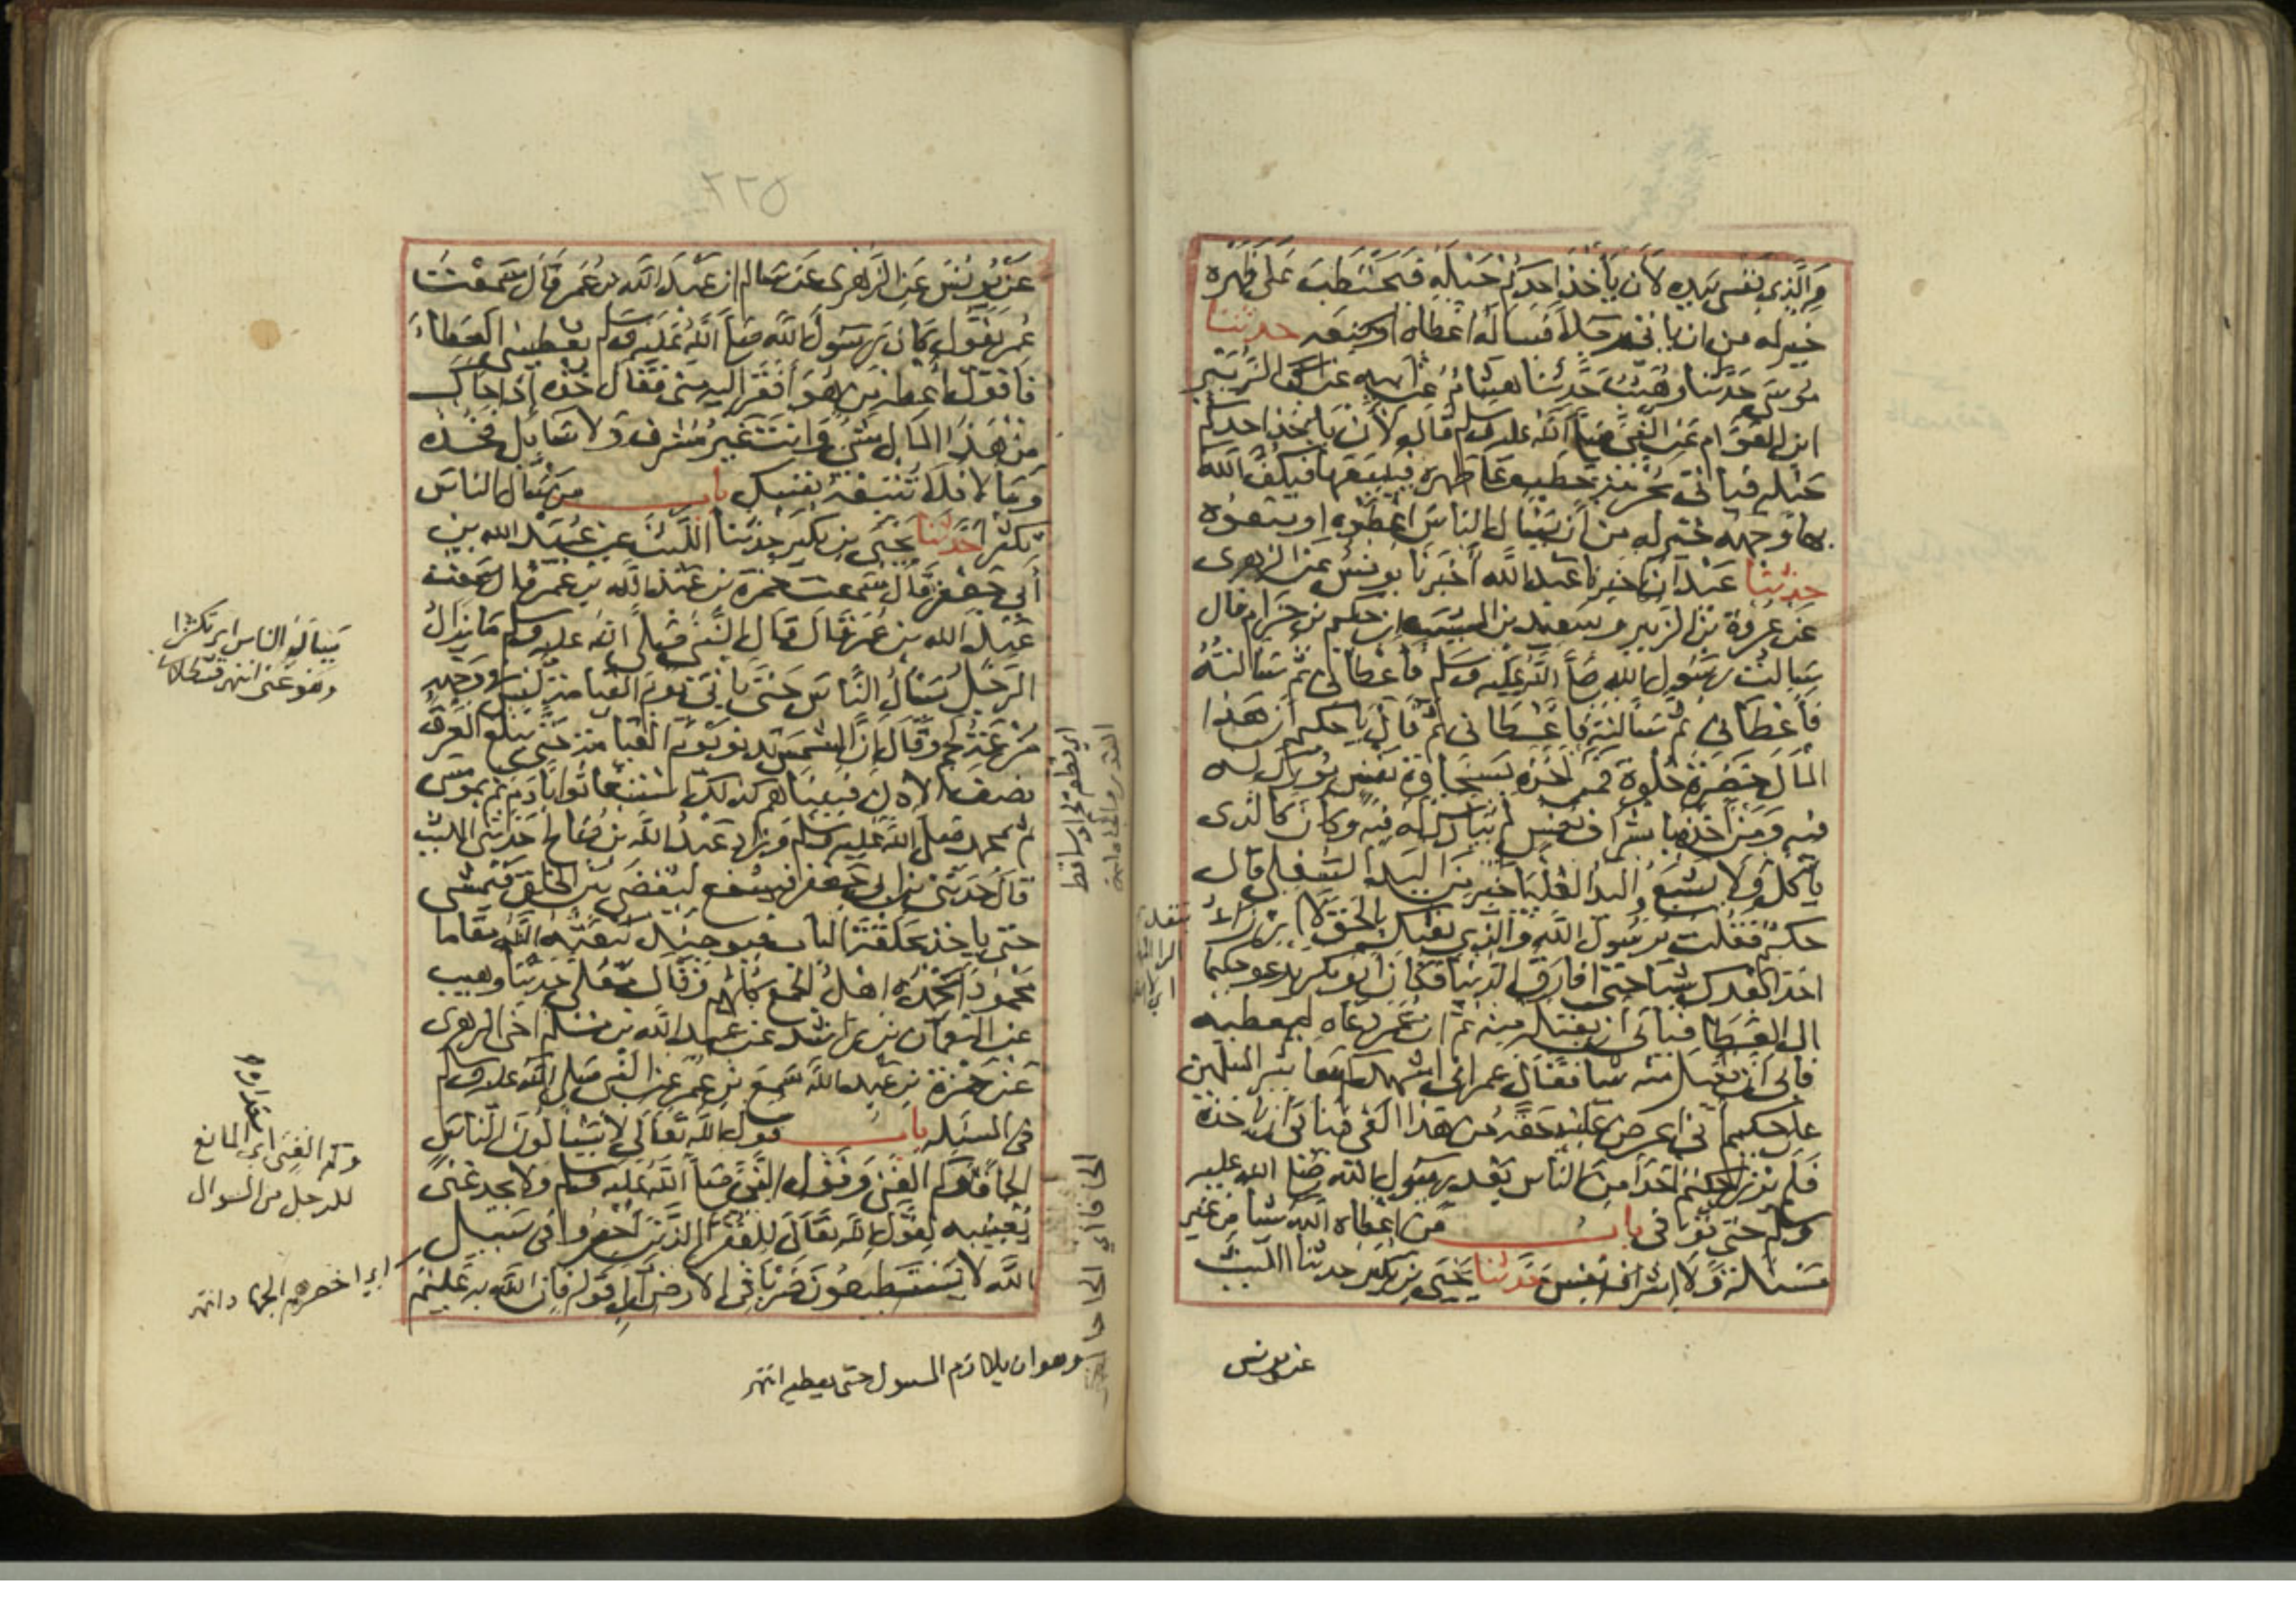 والذي نفسي بيده لأن يأخذ احدكم حبله فيحتطب على ظهره
خير له من ان ياتي رجلا فيساله اعطاه او منعه حدثنا
موسى حدثنا وهيب حدثنا هشام عن ابيه عن الزبير
ابن العوام عن النبي صلى الله عليه وسلم قال لأن يأخذ احدكم
حبله فياتي بحزمة حطب على ظهره فيبيعها فيكف الله
بها وجهه خير له من أن يسال الناس اعطوه او منعوه
حدثنا عبدان اخبرنا عبد الله أخبرنا يونس عن الزهري
عن عروة بن الزبير وسعيد بن المسيب ان حكيم بن حزام قال
سالت رسول الله صلى الله عليه وسلم فاعطاني ثم سالته
فأعطاني ثم سالته فاعطاني ثم قال يا حكيم ان هذا
المال خضرة حلوة فمن اخذه بسخاوة نفس بورك له
فيه ومن اخذه باشراف نفس لم يبارك له فيه وكان كالذي
ياكل ولا يشبع واليد العليا خير من اليد السفلى قال
حكيم فقلت يرسول الله والذي بعثك بالحق لا ارزأ
احدا بعدك شيا حتى افارق الدنيا فكان ابو بكر يدعو حكيما
الى العطا فيابى ان يقبله منه ثم ان عمر دعاه ليعطيه
فابى ان يقبل منه شيا فقال عمر اني اشهدكم يا معاشر المسلمين
على حكيم اني اعرض عليه حقه من هذا الفي فيابى ان ياخذه
فلم يرزأ حكيم احدا من الناس بعد رسول الله صلى الله عليه
وسلم حتى توفي باب من اعطاه الله شيا من غير
مسالة ولا اشراف نفس حدثنا يحيى بن بكير حدثنا الليث
عن يونس
٢٢٥
عن يونس عن الزهري عن سالم ان عبد الله بن عمر قال سمعت
عمر يقول كان رسول الله صلى الله عليه وسلم يعطيني العطاء
فاقول اعطه من هو أفقر اليه مني فقال خذه إذا جاك
من هذا المال شي وانت غير مشرف ولا سايل فخذه
وما لا فلا تتبعه نفسك باب من سال الناس
تكثرا حدثنا يحيى بن بكير حدثنا الليث عن عبيد الله بن
أبي جعفر قال سمعت حمزة بن عبد الله بن عمر قال سمعت
عبد الله بن عمر قال قال النبي صلى الله عليه وسلم ما يزال
الرجل يسأل الناس حتى ياتي يوم القيامة ليس في وجهه
مزعة لحم وقال ان الشمس تدنو يوم القيامة حتى يبلغ العرق
نصف الاذن فبينا هم كذلك استغاثوا بادم ثم بموسى
ثم بمحمد صلى الله عليه وسلم وزاد عبد الله بن صالح حدثني الليث
قال حدثني ابن ابي جعفر فيشفع ليقضى بين الخلق فيمشي
حتى ياخذ بحلقة الباب فيوميذ يبعثه الله مقاما
محمودا يحمده اهل الجمع كلهم وقال معلى حدثنا وهيب
عن النعمان بن راشد عن عبد الله بن مسلم اخي الزهري
عن حمزة بن عبد الله سمع بن عمر عن النبي صلى الله عليه وسلم
في المسئلة باب قول الله تعالى لا يسالون الناس
الحافا وكم الغنى وقول النبي صلى الله عليه وسلم ولا يجد غنى
يغنيه لقول الله تعالى للفقرا الذين احصروا في سبيل
الله لا يستطيعون ضربا في الارض الى قوله فان الله به عليم
يسال الناس اي تكثرا
وهو غني انتهى قسطلاني
وكم الغنى اي المانع
للرجل من السوال
اي احصرهم الجهاد انتهى
وهو ان يلازم المسول حتى يعطيه انتهى